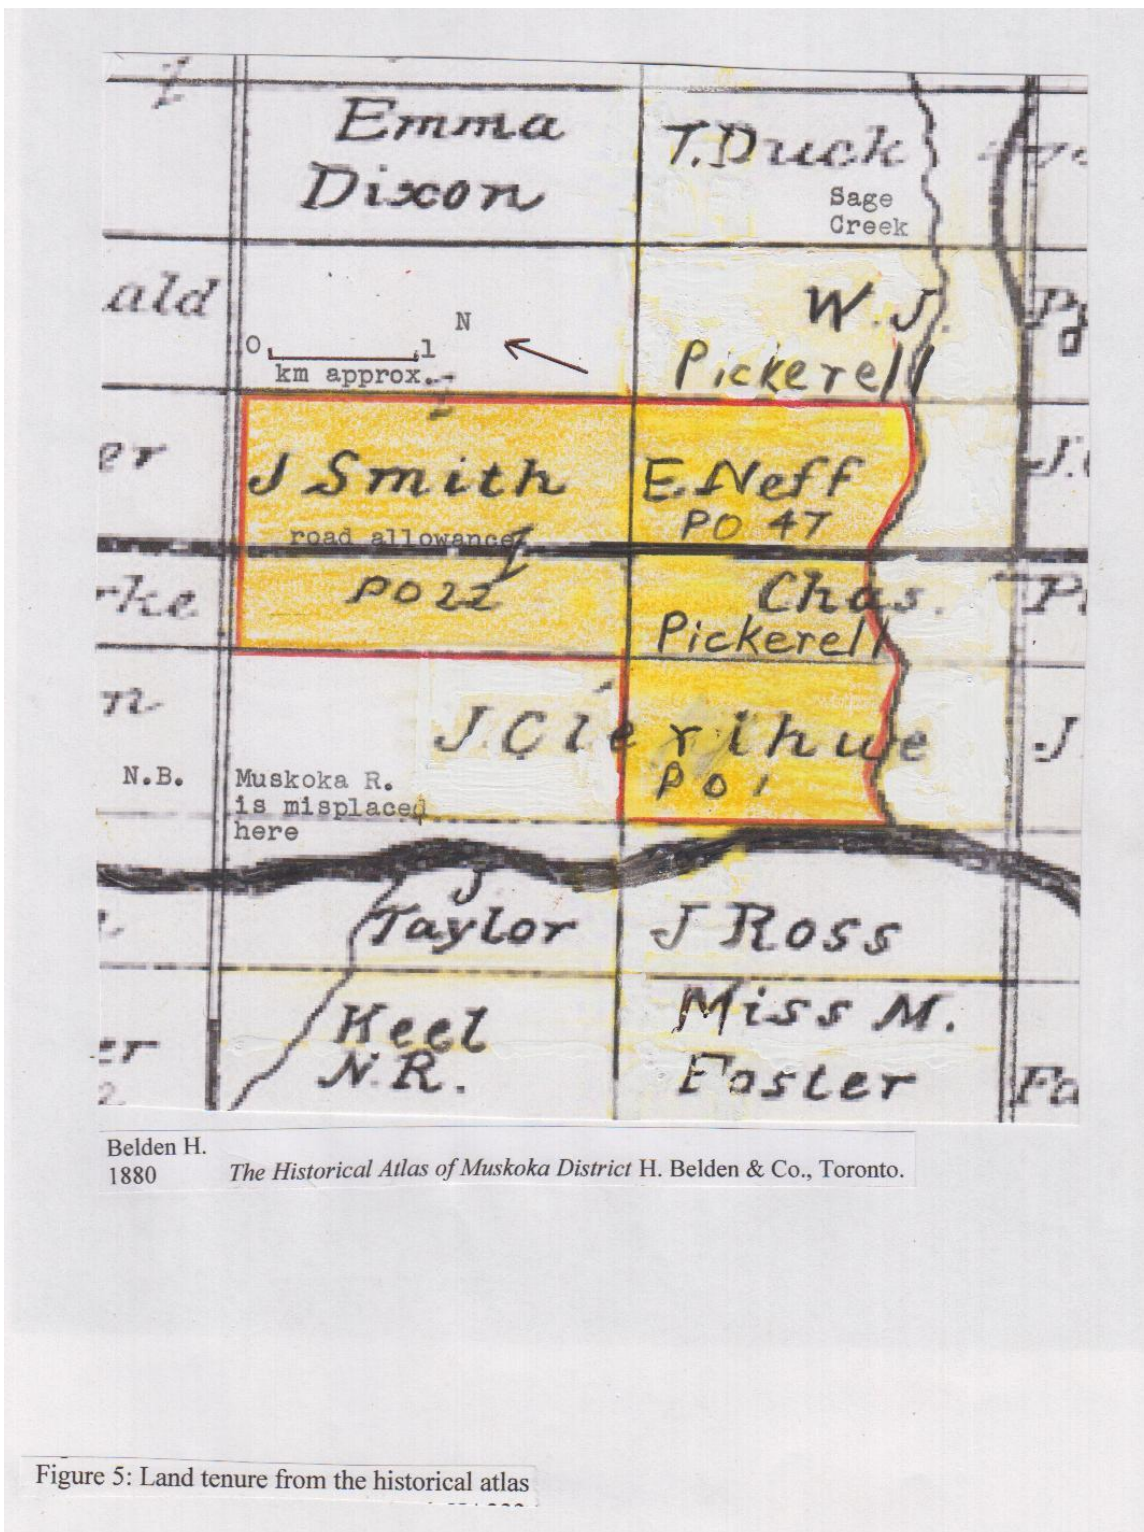 Emma
Dixon
T. Duck
Sage
Creek
ald
W. J.
Pickerell
N
0 1
km approx.
er
J Smith
E. Neff
PO 47
road allowance
rke
PO 22
Chas.
Pickerell
n
J. Clerihue
PO 1
J
N.B.
Muskoka R.
is misplaced
here
J
Taylor
J Ross
Keel
N.R.
Miss M.
Foster
er
2
Fo
Belden H.
1880 The Historical Atlas of Muskoka District H. Belden & Co., Toronto.
Figure 5: Land tenure from the historical atlas